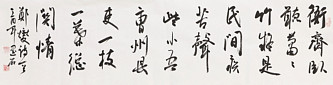 衙斋卧
听萧萧
竹疑是
民间疾
苦声
些小吾
曹州县
吏一枝
一叶总
关情
郑燮诗一首